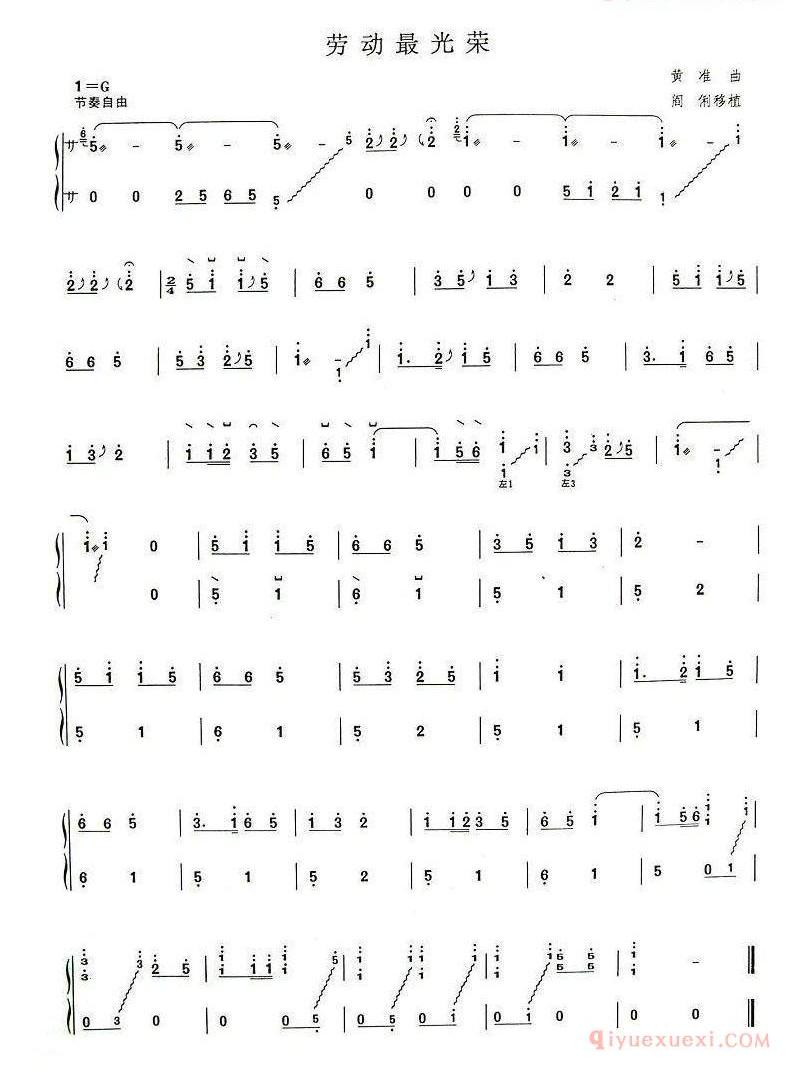 劳动最光荣
1=G
黄准曲
节奏自由
阎俐移植
サ 5 - 5 - 5 - 2 2 (2) 1 - 1 - 1 - 1
サ 0 0 2 5 6 5 5 0 0 0 0 5 1 2 1 1
2 2 (2) | 2/4 5 1 1 5 | 6 6 5 | 3 5 1 3 | 2 2 | 5 1 1 5 |
6 6 5 | 5 3 2 5 | 1 - 1 1 | 1. 2 1 5 | 6 6 5 | 3. 1 6 5 |
1 3 2 | 1 1 2 3 5 | 6 5 1 | 1 5 6 1 1 1 | 3 3 3 2 5 | 1 - 1 1
左1 左3
1 1 0 | 5 1 1 5 | 6 6 5 | 3 5 1 3 | 2 - |
0 | 5 1 | 6 1 | 5 1 | 5 2 |
5 1 1 5 | 6 6 5 | 5 3 2 5 | 1 1 | 1. 2 1 5 |
5 1 | 6 1 | 5 2 | 5 1 | 5 1 |
6 6 5 | 3. 1 6 5 | 1 3 2 | 1 1 2 3 5 | 6 5 1 | 1 5 6 1 1 1 |
6 1 | 5 1 | 5 2 | 5 1 | 6 1 | 5 0 1 |
3 3 3 2 5 | 1 1 1 1 1 5 | 1 1 1 1 1 | 1 1 6 5 6 5 | 1 1 - ‖
0 3 0 | 0 0 5 | 0 0 1 | 0 1 0 | 0 1 ‖
qiyuexuexi.com